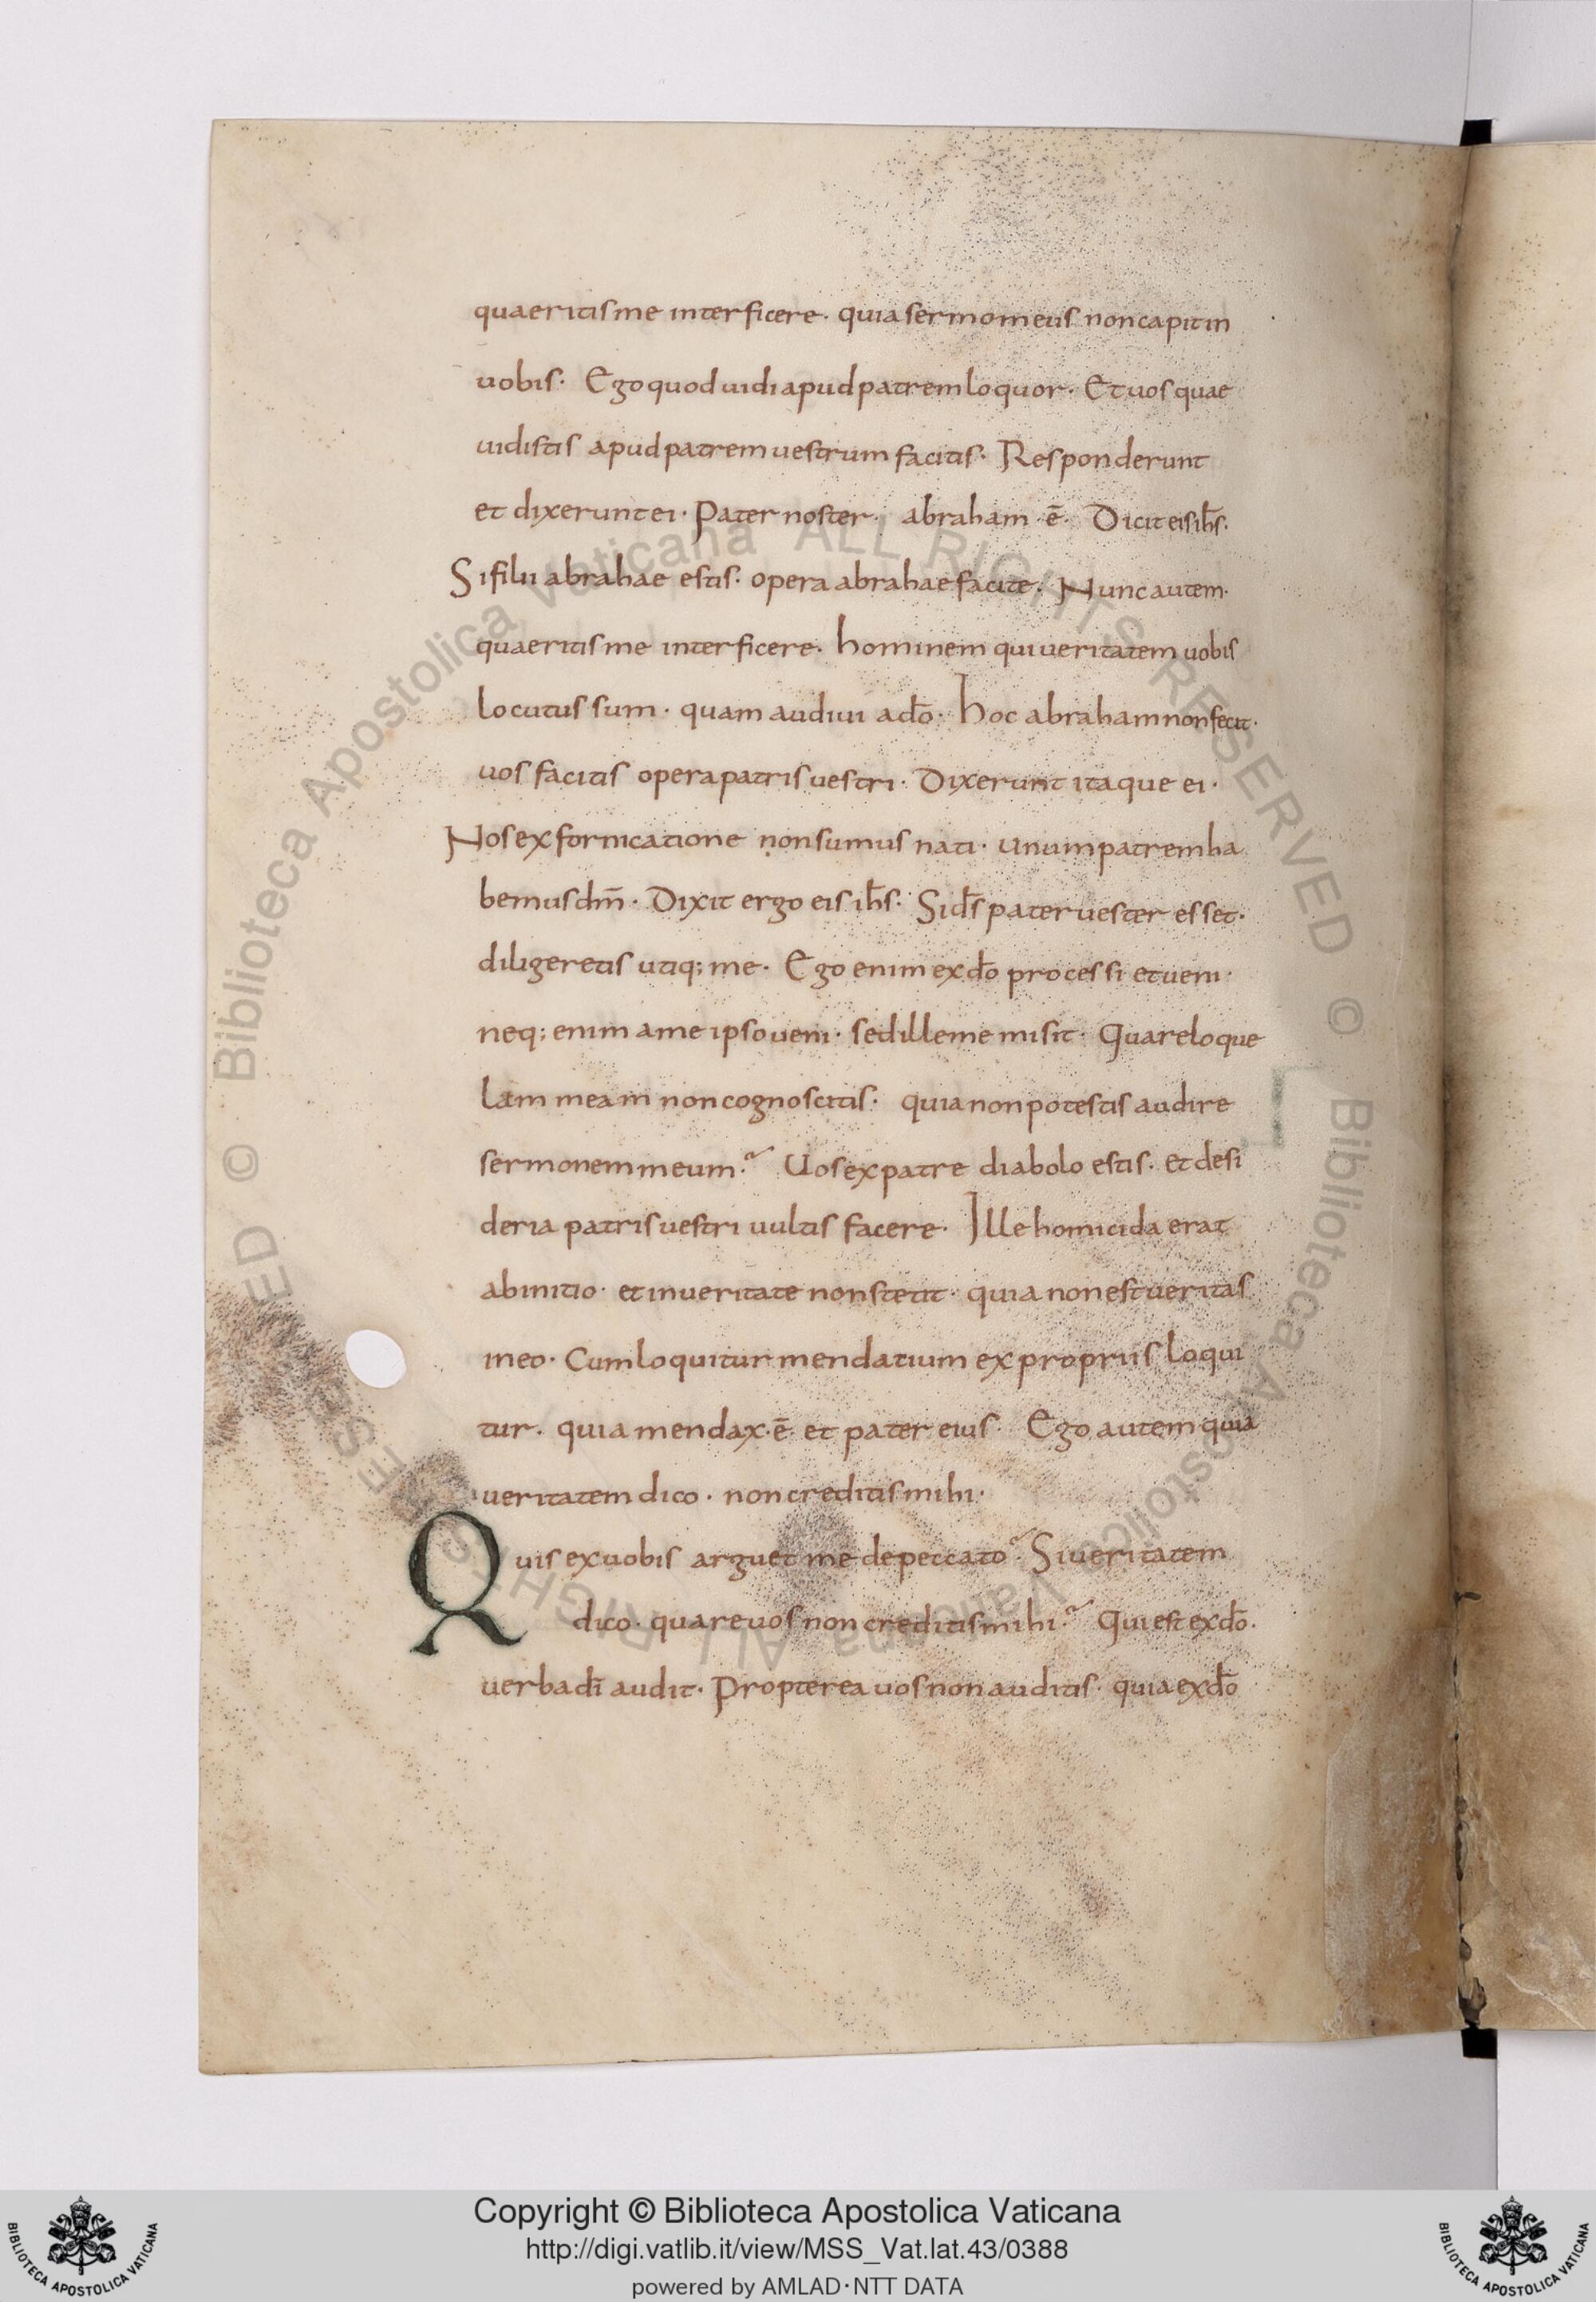 quaeritis me interficere · quia sermo meus non capit in
uobis · Ego quod uidi apud patrem loquor · Et uos quae
uidistis apud patrem uestrum facitis · Responderunt
et dixerunt ei · Pater noster · abraham ē · Dicit eis ih̄s ·
Si filii abrahae estis · opera abrahae facite · Nunc autem ·
quaeritis me interficere · hominem qui ueritatem uobis
locutus sum · quam audiui a dō · hoc abraham non fecit ·
uos facitis opera patris uestri · Dixerunt itaque ei ·
Nos ex fornicatione non sumus nati · unum patrem ha
bemus dm̄ · Dixit ergo eis ih̄s · Si ds̄ pater uester esset ·
diligeretis utiq; me · Ego enim ex dō processi et ueni ·
neq; enim a me ipso ueni · sed ille me misit · Quare loque
lam meam non cognoscitis · quia non potestis audire
sermonem meum? Uos ex patre diabolo estis · et desi
deria patris uestri uultis facere · Ille homicida erat
ab initio · et in ueritate non stetit · quia non est ueritas
in eo · Cum loquitur mendatium ex propriis loqui
tur · quia mendax · ē · et pater eius · Ego autem quia
ueritatem dico · non creditis mihi ·
Quis ex uobis arguet me de peccato? Si ueritatem
dico · quare uos non creditis mihi? Qui est ex dō ·
uerba dī audit · Propterea uos non auditis · quia ex dō
© Biblioteca Apostolica Vaticana ALL RIGHTS RESERVED
Copyright © Biblioteca Apostolica Vaticana
http://digi.vatlib.it/view/MSS_Vat.lat.43/0388
powered by AMLAD·NTT DATA
BIBLIOTECA APOSTOLICA VATICANA
BIBLIOTECA APOSTOLICA VATICANA